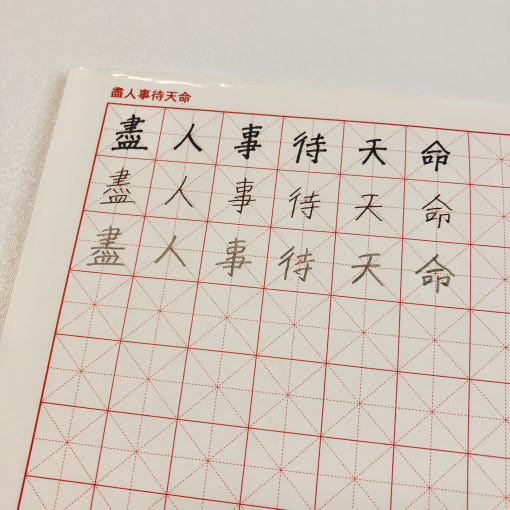 盡人事待天命
盡人事待天命
盡人事待天命
盡人事待天命